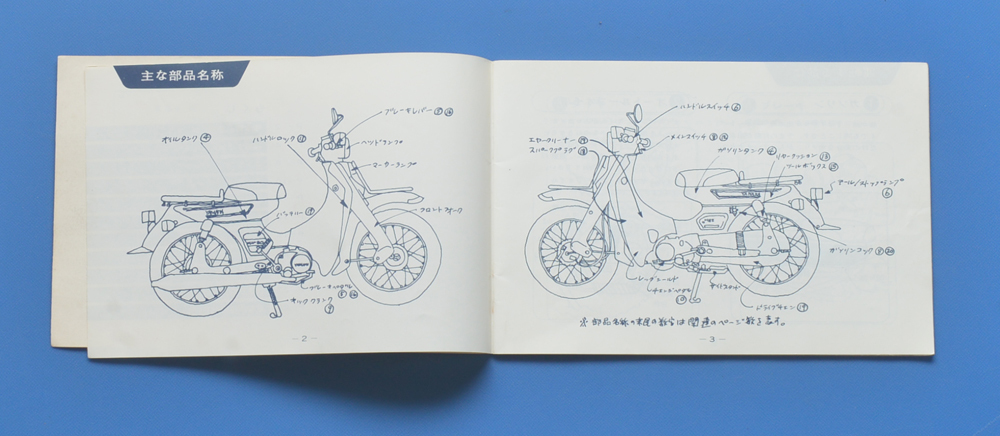 主な部品名称
ブレーキレバー
オイルタンク④
ハンドルロック
ヘッドランプ
マーカーランプ
フロントフォーク
バッテリー
YAMAHA
ブレーキペダル
キッククランク
— 2 —
ハンドルスイッチ⑥
エヤークリーナー
メインスイッチ
スパークプラグ
ガソリンタンク④
リヤークッション
ツールボックス
テール/ストップランプ
⑥
ガソリンコック
レッグシールド
チェンジペダル
サイドスタンド
ドライブチェン
※部品名称の末尾の数字は関連のページ数を表す。
— 3 —